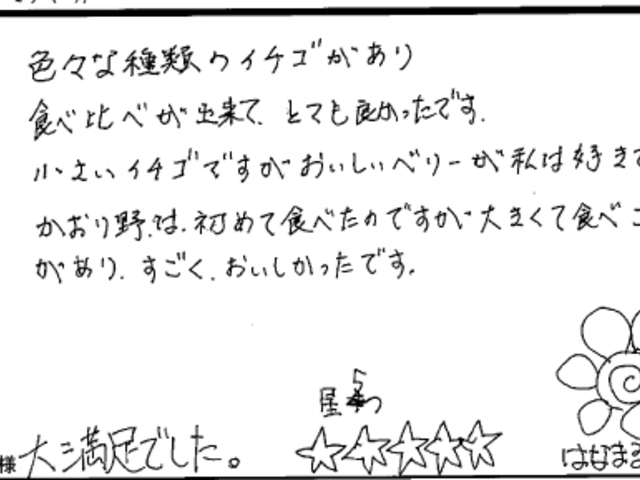 色々な種類のイチゴがあり
食べ比べが出来て、とても良かったです。
小さいイチゴですがおいしいベリーが私は好きで
かおり野は、初めて食べたのですが大きくて食べご
があり、すごく、おいしかったです。
星5つ
様 大満足でした。 ☆☆☆☆☆ はなまる